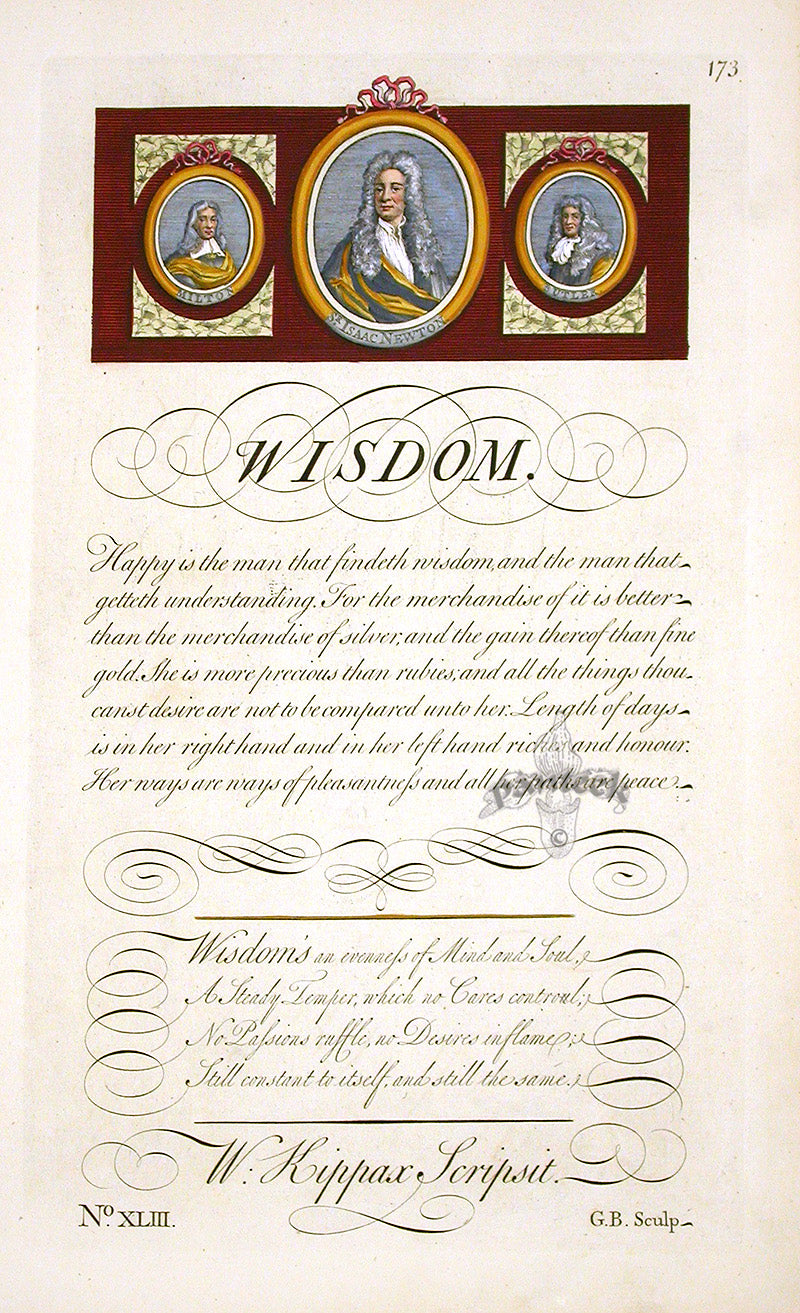 173
MILTON
Sr. ISAAC NEWTON
BUTLER
WISDOM.
Happy is the man that findeth wisdom, and the man that
getteth understanding. For the merchandise of it is better
than the merchandise of silver, and the gain thereof than fine
gold. She is more precious than rubies; and all the things thou
canst desire are not to be compared unto her. Length of days
is in her right hand and in her left hand riches and honour.
Her ways are ways of pleasantneſs and all her paths are peace.
Wisdom's an evenneſs of Mind and Soul,
A Steady Temper, which no Cares controul;
No Paſsions ruffle, no Desires inflame;
Still constant to itself, and still the same.
W: Kippax Scripsit.
No. XLIII.
G.B. Sculp